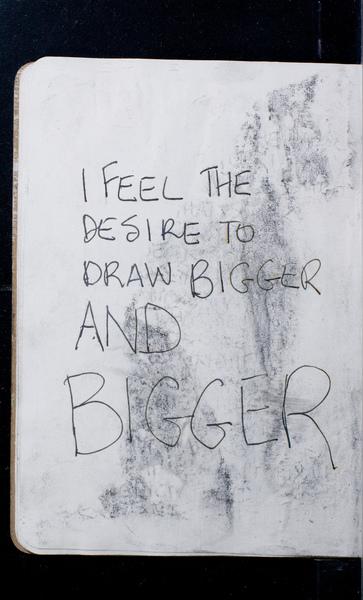 I FEEL THE
DESIRE TO
DRAW BIGGER
AND
BIGGER